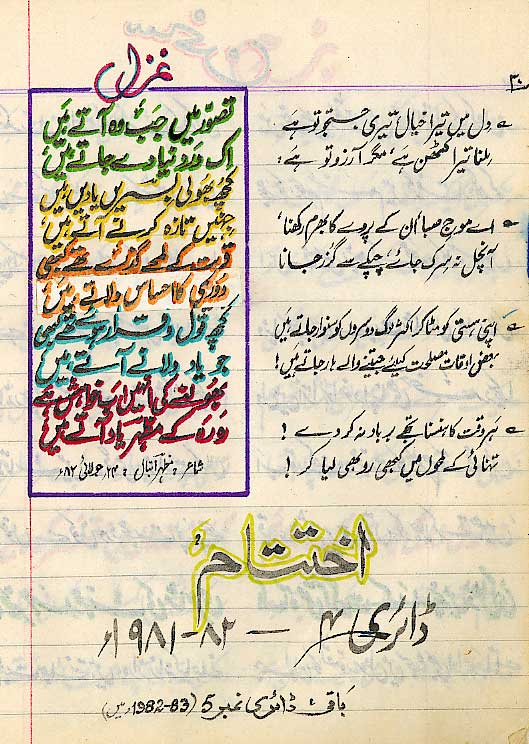 ۲۰
دل میں تیرا خیال، تیری جستجو تو ہے
ملنا تیرا کٹھن ہے، مگر آرزو تو ہے :
اے موجِ صبا اُن کے پردے کا بھرم رکھنا،
آنچل نہ سرک جائے، چپکے سے گزر جانا
اپنی ہستی کو مٹا کر اکثر لوگ دوسروں کو سنوار جاتے ہیں
بعض اوقات مصلحت کیلئے جیتنے والے ہار جاتے ہیں!
ہر وقت کا ہنسنا تجھے برباد نہ کر دے !
تنہائی کے لمحوں میں کبھی رو بھی لیا کر !
غزل
تصوّر میں جَب وہ آتے ہیں
اِک درد نیا دے جاتے ہیں
کچھ بھولی بسریں یادیں ہیں
جنہیں تازہ کرتے آتے ہیں
قربت کے لمحے گزرے تھے کبھی
دوری کا احساس دلاتے ہیں
کچھ قول و قرار ہوئے تھے کبھی
جو یاد دلانے آتے ہیں
بھولنے کی اُنہیں اب خواہش ہے
رہ رہ کے مظہر یاد آتے ہیں
شاعر، مظہر اقبال، ۲۴ جولائی ۸۲ء
اختتام
ڈائری ۴ — ۸۲-۱۹۸۱ء
باقی: ڈائری نمبر 5 (83-1982ء میں)